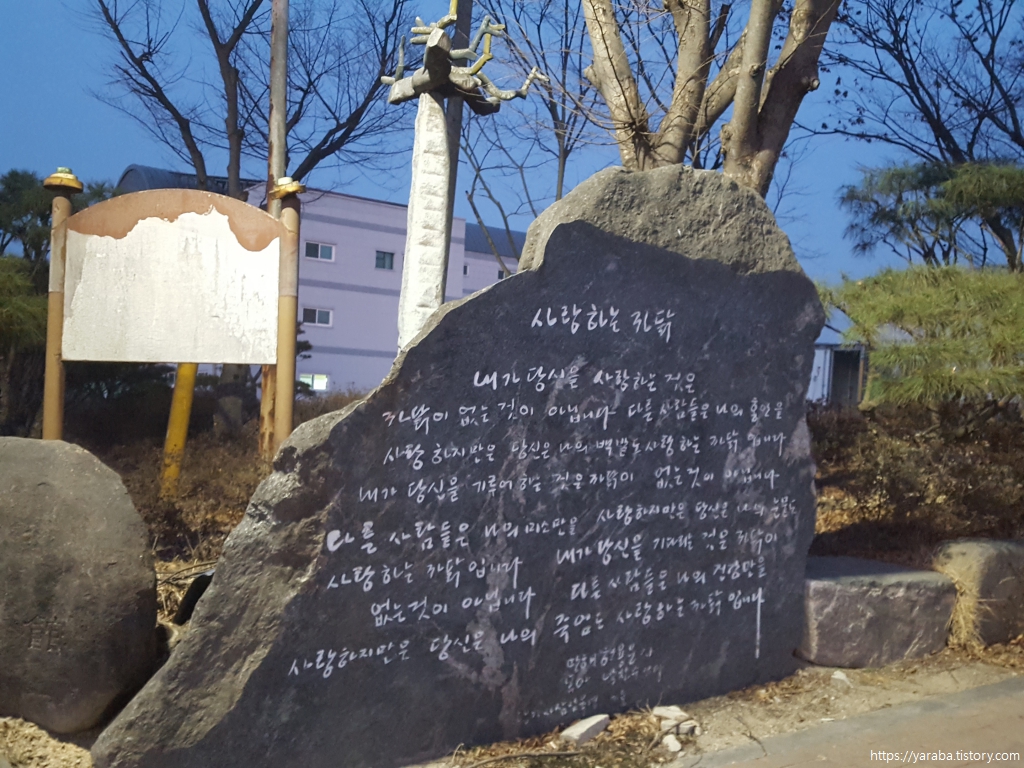 사랑하는 까닭
내가 당신을 사랑하는 것은
까닭이 없는 것이 아닙니다 다른 사람들은 나의 홍안을
사랑하지만은 당신은 나의 백발도 사랑하는 까닭입니다
내가 당신을 기루어하는 것은 까닭이 없는것이 아닙니다
다른 사람들은 나의 미소만을 사랑하지만은 당신은 나의 눈물도
사랑하는 까닭입니다 내가 당신을 기다리는 것은 까닭이
없는것이 아닙니다 다른 사람들은 나의 건강만을
사랑하지만은 당신은 나의 죽음도 사랑하는 까닭입니다
만해 한용운 시
館
https://yaraba.tistory.com